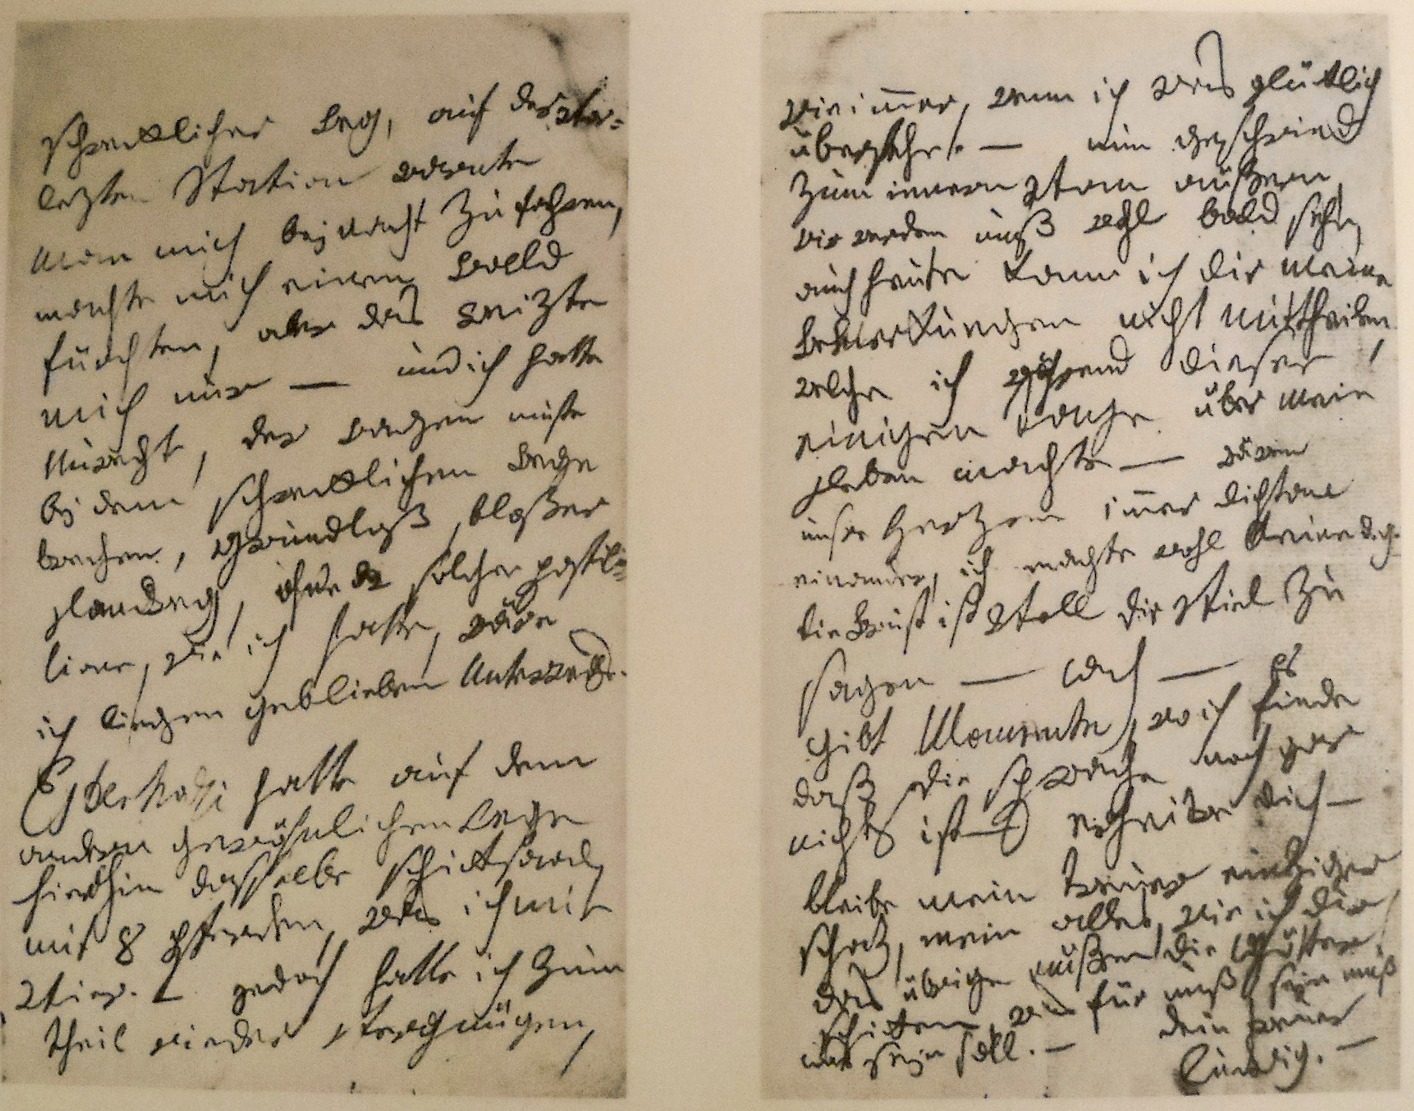 schrecklicher Weg, auf der vor=
lezten Station warnte
man mich bej nacht zu fahren,
machte mich einen Wald
fürchten, aber das Reizte
mich nur — und ich hatte
Unrecht, der Wagen muste
bej dem schrecklichen Wege
brechen, grundloß, bloßer
Landweg, ohne solche Postil=
lione, wie ich hatte, wäre
ich liegen geblieben Unterwegs.
Esterhazi hatte auf dem
andern gewöhnlichen Wege
hierhin dasselbe schicksaal,
mit 8 Pferden, was ich mit
vier. — jedoch hatte ich zum
theil wieder Vergnügen,
wie im̄er, wenn ich was glücklich
überstehe. — nun geschwind
zum innern vom aüßern,
wir werden unß wohl bald sehn,
auch heute kann ich dir meine
Bemerkungen nicht mittheilen,
welche ich während dieser
einigen Tage über mein
Leben machte — wären
unsre Herzen im̄er dicht an
einander, ich machte wohl keine d.g.
die Brust ist voll dir viel zu
sagen — Ach — Es
gibt Momente, wo ich finde
daß die sprache noch gar
nichts ist — erheitre dich —
bleibe mein treuer einziger
schaz, mein alles, wie ich dir
das übrige müßen die Götter
schicken, was für unß sejn muß
und sejn soll. — dein treuer
ludwig. —